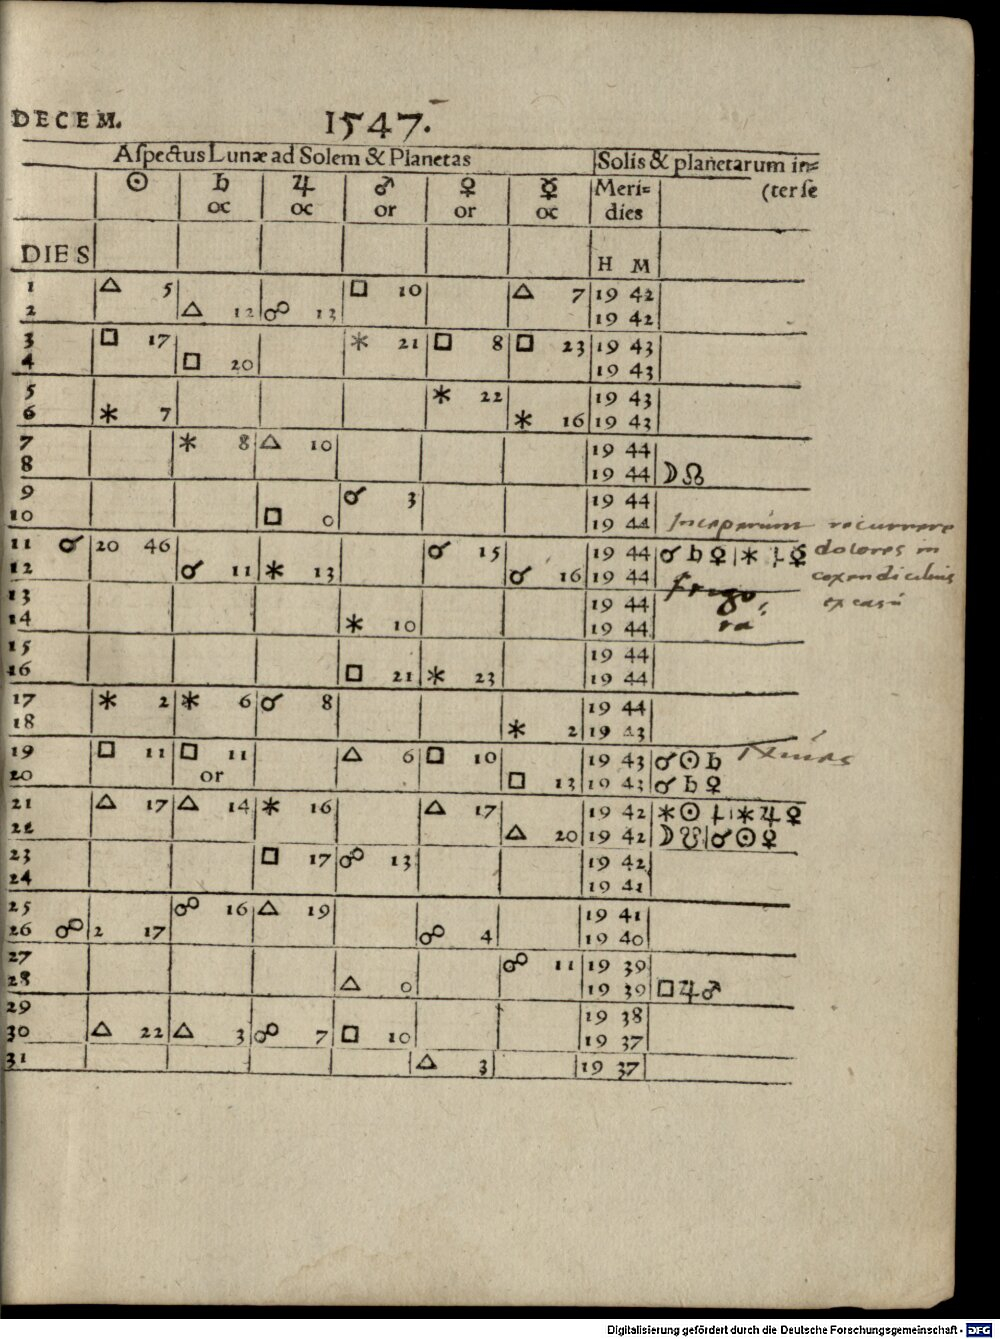 DECEM. 1547.
Aſpectus Lunæ ad Solem & Planetas Solis & planetarum in=
☉ ♄ ♃ ♂ ♀ ☿ Meri= (ter ſe
oc oc or or oc dies
DIES H M
1 △ 5 □ 10 △ 7 19 42
2 △ 12 ☍ 13 19 42
3 □ 17 ⚹ 21 □ 8 □ 23 19 43
4 □ 20 19 43
5 ⚹ 22 19 43
6 ⚹ 7 ⚹ 16 19 43
7 ⚹ 8 △ 10 19 44
8 19 44 ☽☊
9 ☌ 3 19 44
10 □ 0 19 44 Inceperunt recurrere
11 ☌ 20 46 ☌ 15 19 44 ☌♄♀|⚹ ♃☿ dolores in
12 ☌ 11 ⚹ 13 ☌ 16 19 44 coxendicibus
13 19 44 frigo,
14 ⚹ 10 19 44 ra
15 19 44
16 □ 21 ⚹ 23 19 44
17 ⚹ 2 ⚹ 6 ☌ 8 19 44
18 ⚹ 2 19 43
19 □ 11 □ 11 △ 6 □ 10 19 43 ☌☉♄
20 or □ 13 19 43 ☌♄♀
21 △ 17 △ 14 ⚹ 16 △ 17 19 42 ⚹☉ ♃|⚹♃♀
22 △ 20 19 42 ☽☋|☌☉♀
23 □ 17 ☍ 13 19 42
24 19 41
25 ☍ 16 △ 19 19 41
26 ☍ 2 17 ☍ 4 19 40
27 ☍ 11 19 39
28 △ 0 19 39 □♃♂
29 19 38
30 △ 22 △ 3 ☍ 7 □ 10 19 37
31 △ 3 19 37
Digitalisierung gefördert durch die Deutsche Forschungsgemeinschaft - DFG